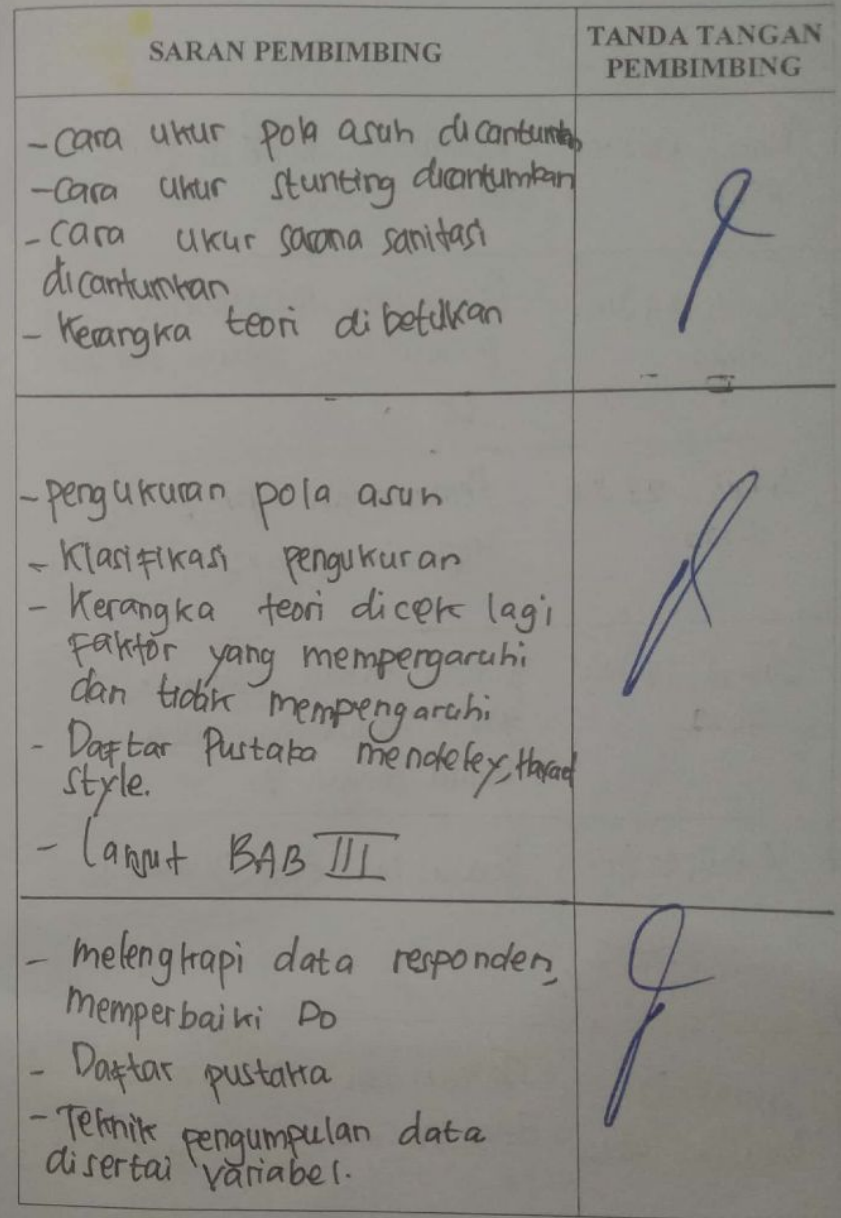 SARAN PEMBIMBING
TANDA TANGAN
PEMBIMBING
- Cara ukur pola asuh dicantumkan
- Cara ukur stunting dicantumkan
- Cara ukur sarana sanitasi
dicantumkan
- Kerangka teori dibetulkan
- Pengukuran pola asuh
- Klasifikasi pengukuran
- Kerangka teori dicek lagi
Faktor yang mempergaruhi
dan tidak mempengaruhi
- Daftar Pustaka mendeley, Harvard
style.
- Lanjut BAB III
- melengkapi data responden,
memperbaiki DO
- Daftar pustaka
- Teknik pengumpulan data
disertai variabel.